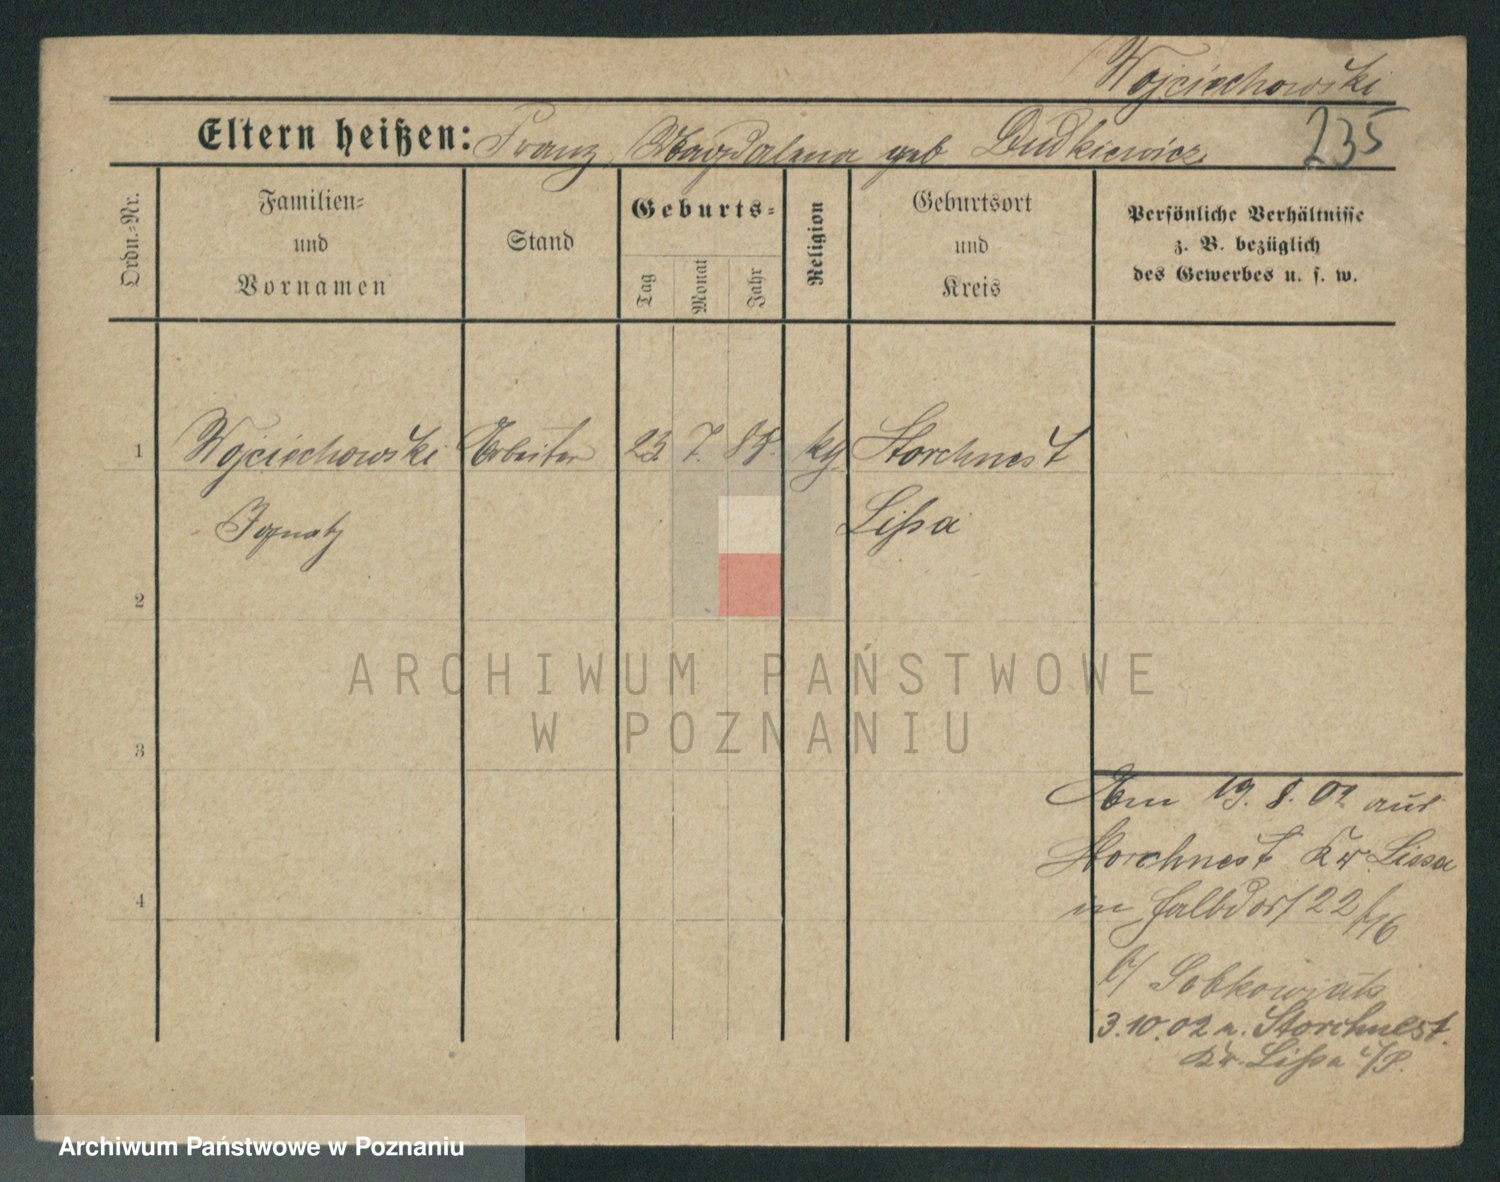 Wojciechowski
Eltern heißen: Franz, Magdalena geb Dudkiewicz
235
Ordn.-Nr.
Familien-
und
Vornamen
Stand
Geburts-
Tag
Monat
Jahr
Religion
Geburtsort
und
Kreis
Persönliche Verhältnisse
z. B. bezüglich
des Gewerbes u. s. w.
1
Wojciechowski Arbeiter 7. kg Storchnest
Ignatz Lissa
2
3
Am 19. 8. 02 aus
Storchnest Kr. Lissa
in 22
4
b/ Sobkowiak
3.10.02 n. Storchnest.
Kr. Lissa i/P.
ARCHIWUM PAŃSTWOWE
W POZNANIU
Archiwum Państwowe w Poznaniu